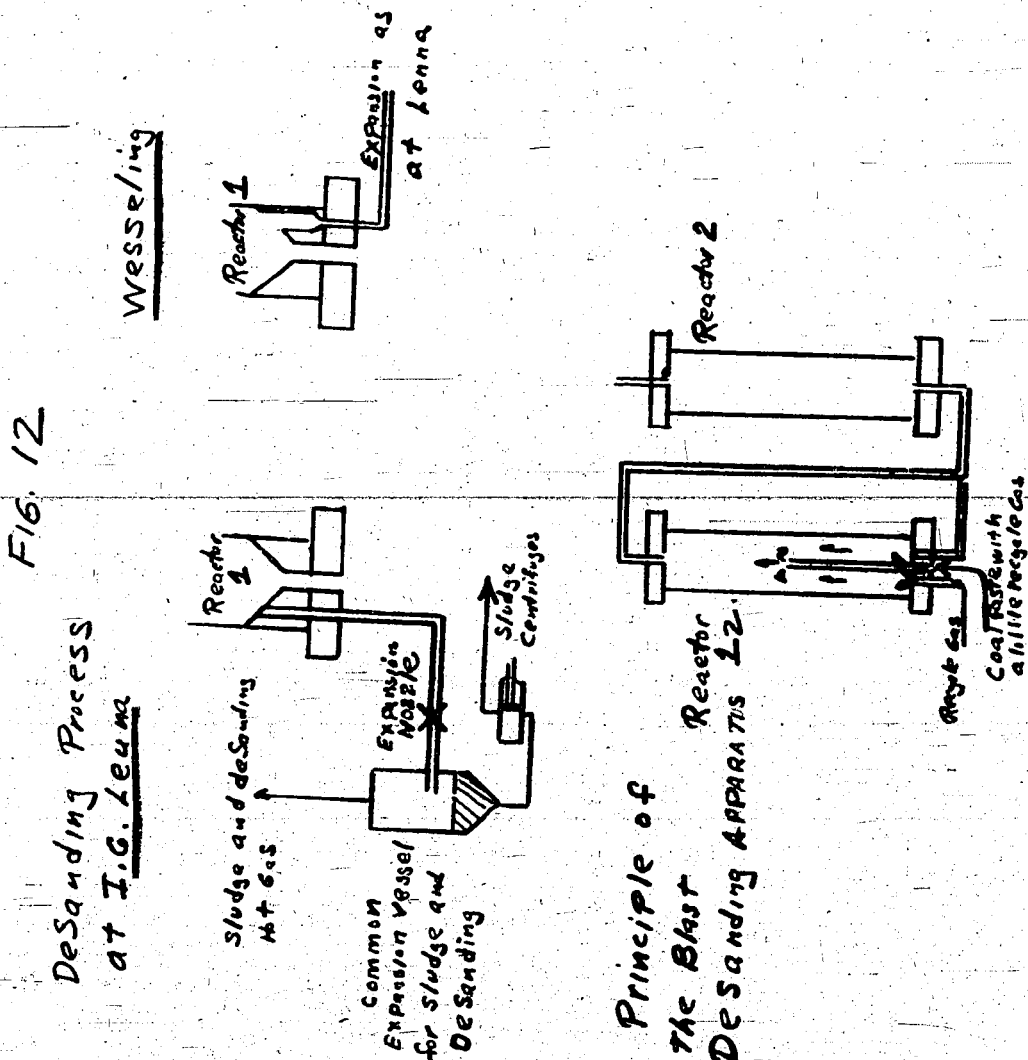 FIG. 12
DeSanding Process
at I.G. Leuna
Wesseling
Reactor
1
Reactor 1
Expansion as
at Lenna
Sludge and deSanding
Hot Gas
Expansion
Nozzle
Common
Expansion Vessel
for Sludge and
DeSanding
Sludge
Centrifuges
Principle of
The Blast
DeSanding APPARATUS
Reactor
12.
Reactor 2
Recycle Gas
Coal Paste with
a little recycle Gas